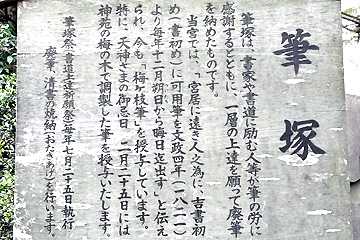 筆塚
筆塚は、書家や書道に励む人等が筆の労に
感謝するとともに、一層の上達を願って廃筆
を納めたものです。
当宮では、「宮居に遠き人之為に、吉書初
め(書初め)に可用筆を文政四年(一八二一)
より毎年十二月朔日から晦日迄出す」と伝え
られ、今も「梅ヶ枝筆」を授与しています。
特に、天神さまの御忌日、二月二十五日には
神苑の梅の木で調製した筆を授与いたします。
筆塚祭・書道上達祈願祭は毎年七月二十五日執行
廃筆、清書の焼納(おたきあげ)を行います。